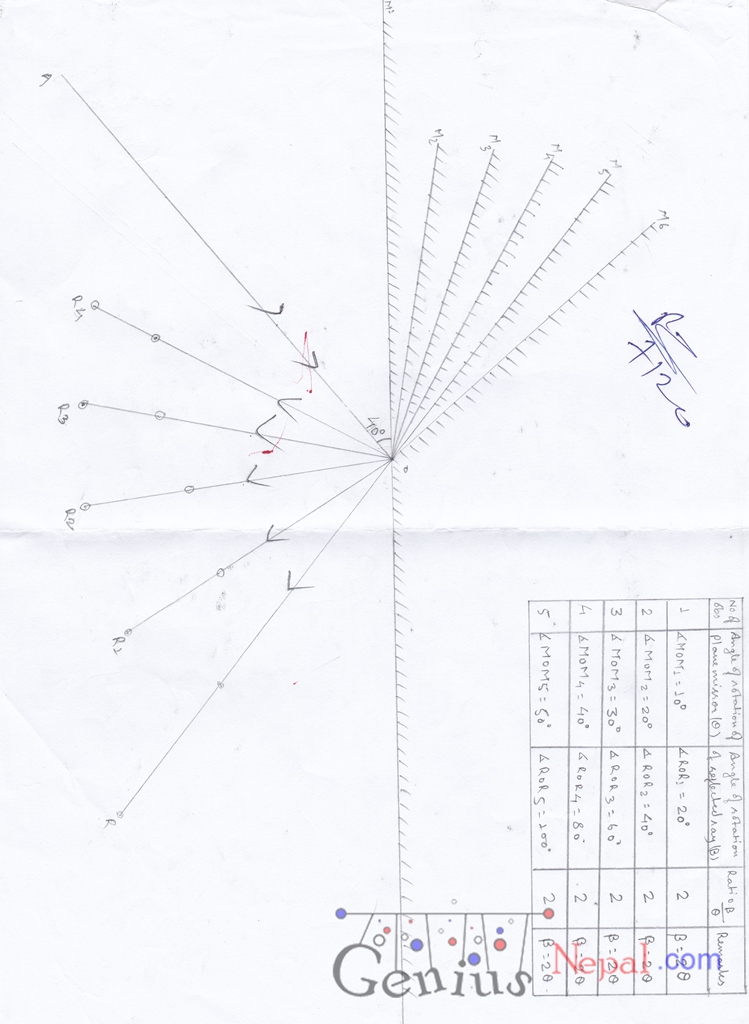 M1
M2
M3
M4
M5
M6
A
40°
O
R4
R3
R2
R1
R
7/20
No of obs
Angle of rotation of plane mirror (θ)
Angle of rotation of reflected ray (β)
Ratio β/θ
Remarks
1 ∡MOM1 = 10° ∡ROR1 = 20° 2 β=2θ
2 ∡MOM2 = 20° ∡ROR2 = 40° 2 β=2θ
3 ∡MOM3 = 30° ∡ROR3 = 60° 2 β=2θ
4 ∡MOM4 = 40° ∡ROR4 = 80° 2 β=2θ
5 ∡MOM5 = 50° ∡ROR5 = 100° 2 β=2θ
Genius Nepal.com